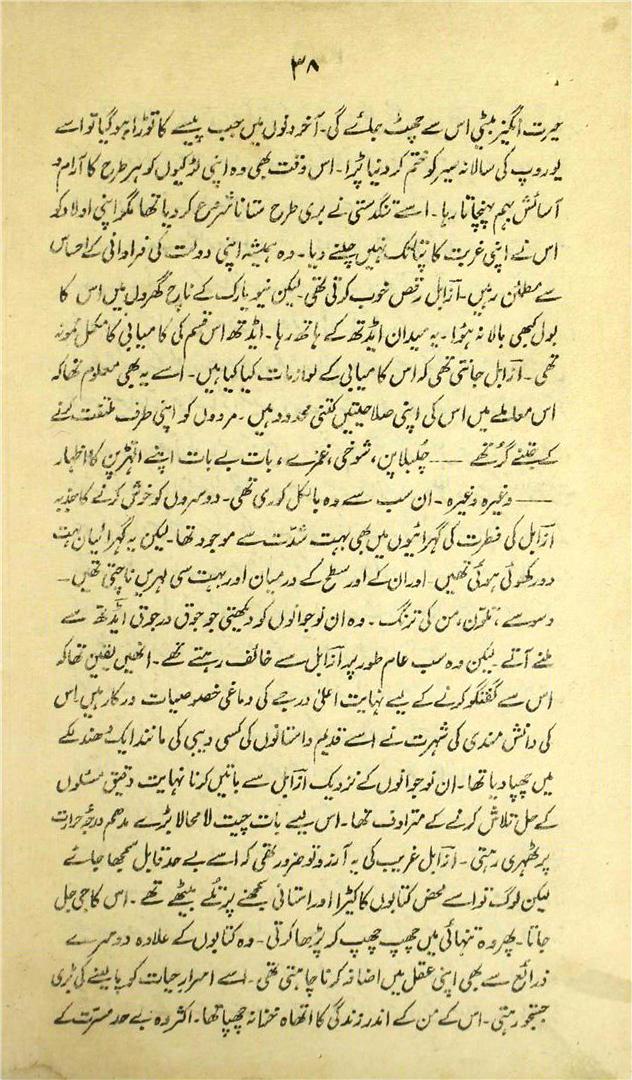 ۳۸
حیرت انگیز بیٹی اس سے چھٹ جائے گی۔ آخر دنوں میں جب پیسے کا توڑا ہو گیا تو اسے
یوروپ کی سالانہ سیر کو ختم کر دینا پڑا۔ اس وقت بھی وہ اپنی لڑکیوں کو ہر طرح کا آرام و
آسائش بہم پہنچاتا رہا۔ اسے تنگدستی نے بری طرح ستانا شروع کر دیا تھا مگر اپنی اولاد کو
اس نے اپنی غربت کا پتا تک نہیں چلنے دیا۔ وہ ہمیشہ اپنی دولت کی فراوانی کے احساس
سے مطمئن رہیں۔ ازابل رقص خوب کرتی تھی لیکن نیویارک کے ناچ گھروں میں اس کا
بول کبھی بالا نہ ہؤا۔ یہ میدان ایڈتھ کے ہاتھ رہا۔ ایڈتھ اس قسم کی کامیابی کا مکمل نمونہ
تھی۔ ازابل جانتی تھی کہ اس کامیابی کے لوازمات کیا کیا ہیں۔ اسے یہ بھی معلوم تھا کہ
اس معاملے میں اس کی اپنی صلاحیتیں کتنی محدود ہیں۔ مردوں کو اپنی طرف ملتفت کرنے
کے جتنے گر تھے —— چلبلاپن، شوخی، غمزے، بات بے بات اپنے الھڑپن کا اظہار
—— وغیرہ وغیرہ۔ ان سب سے وہ بالکل کوری تھی۔ دوسروں کو خوش کرنے کا جذبہ
ازابل کی فطرت کی گہرائیوں میں بھی بہت شدّت سے موجود تھا۔ لیکن یہ گہرائیاں بہت
دور کھوئی ہوئی تھیں۔ اور ان کے اور سطح کے درمیان اور بہت سی لہریں ناچتی تھیں۔
وسوسے، تلوّن، من کی ترنگ۔ وہ ان نوجوانوں کو دیکھتی جو جوق در جوق ایڈتھ سے
ملنے آتے لیکن وہ سب عام طور پر ازابل سے خائف رہتے تھے۔ انھیں یقین تھا کہ
اس سے گفتگو کرنے کے لیے نہایت اعلیٰ درجے کی دماغی خصوصیات درکار ہیں۔ اس
کی دانش مندی کی شہرت نے اسے قدیم داستانوں کی کسی دیبی کی مانند ایک دھندلکے
میں چھپا دیا تھا۔ ان نوجوانوں کے نزدیک ازابل سے باتیں کرنا نہایت دقیق مسئلوں
کے حل تلاش کرنے کے مترادف تھا۔ اس لیے بات چیت لامحالا بڑے مدھم درجۂ حرارت
پر ٹھہری رہتی۔ ازابل غریب کی یہ آرزو تو ضرور تھی کہ اسے بے حد قابل سمجھا جائے
لیکن لوگ تو اسے محض کتابوں کا کیڑا اور استانی سمجھنے پر تلے بیٹھے تھے۔ اس کا جی جل
جاتا۔ پھر وہ تنہائی میں چھپ چھپ کر پڑھا کرتی۔ وہ کتابوں کے علاوہ دوسرے
ذرائع سے بھی اپنی عقل میں اضافہ کرنا چاہتی تھی۔ اسے اسرارِ حیات کو پا لینے کی بڑی
جستجو رہتی۔ اس کے من کے اندر زندگی کا اتھاہ خزانہ چھپا تھا۔ اکثر وہ بے حد مسرّت کے